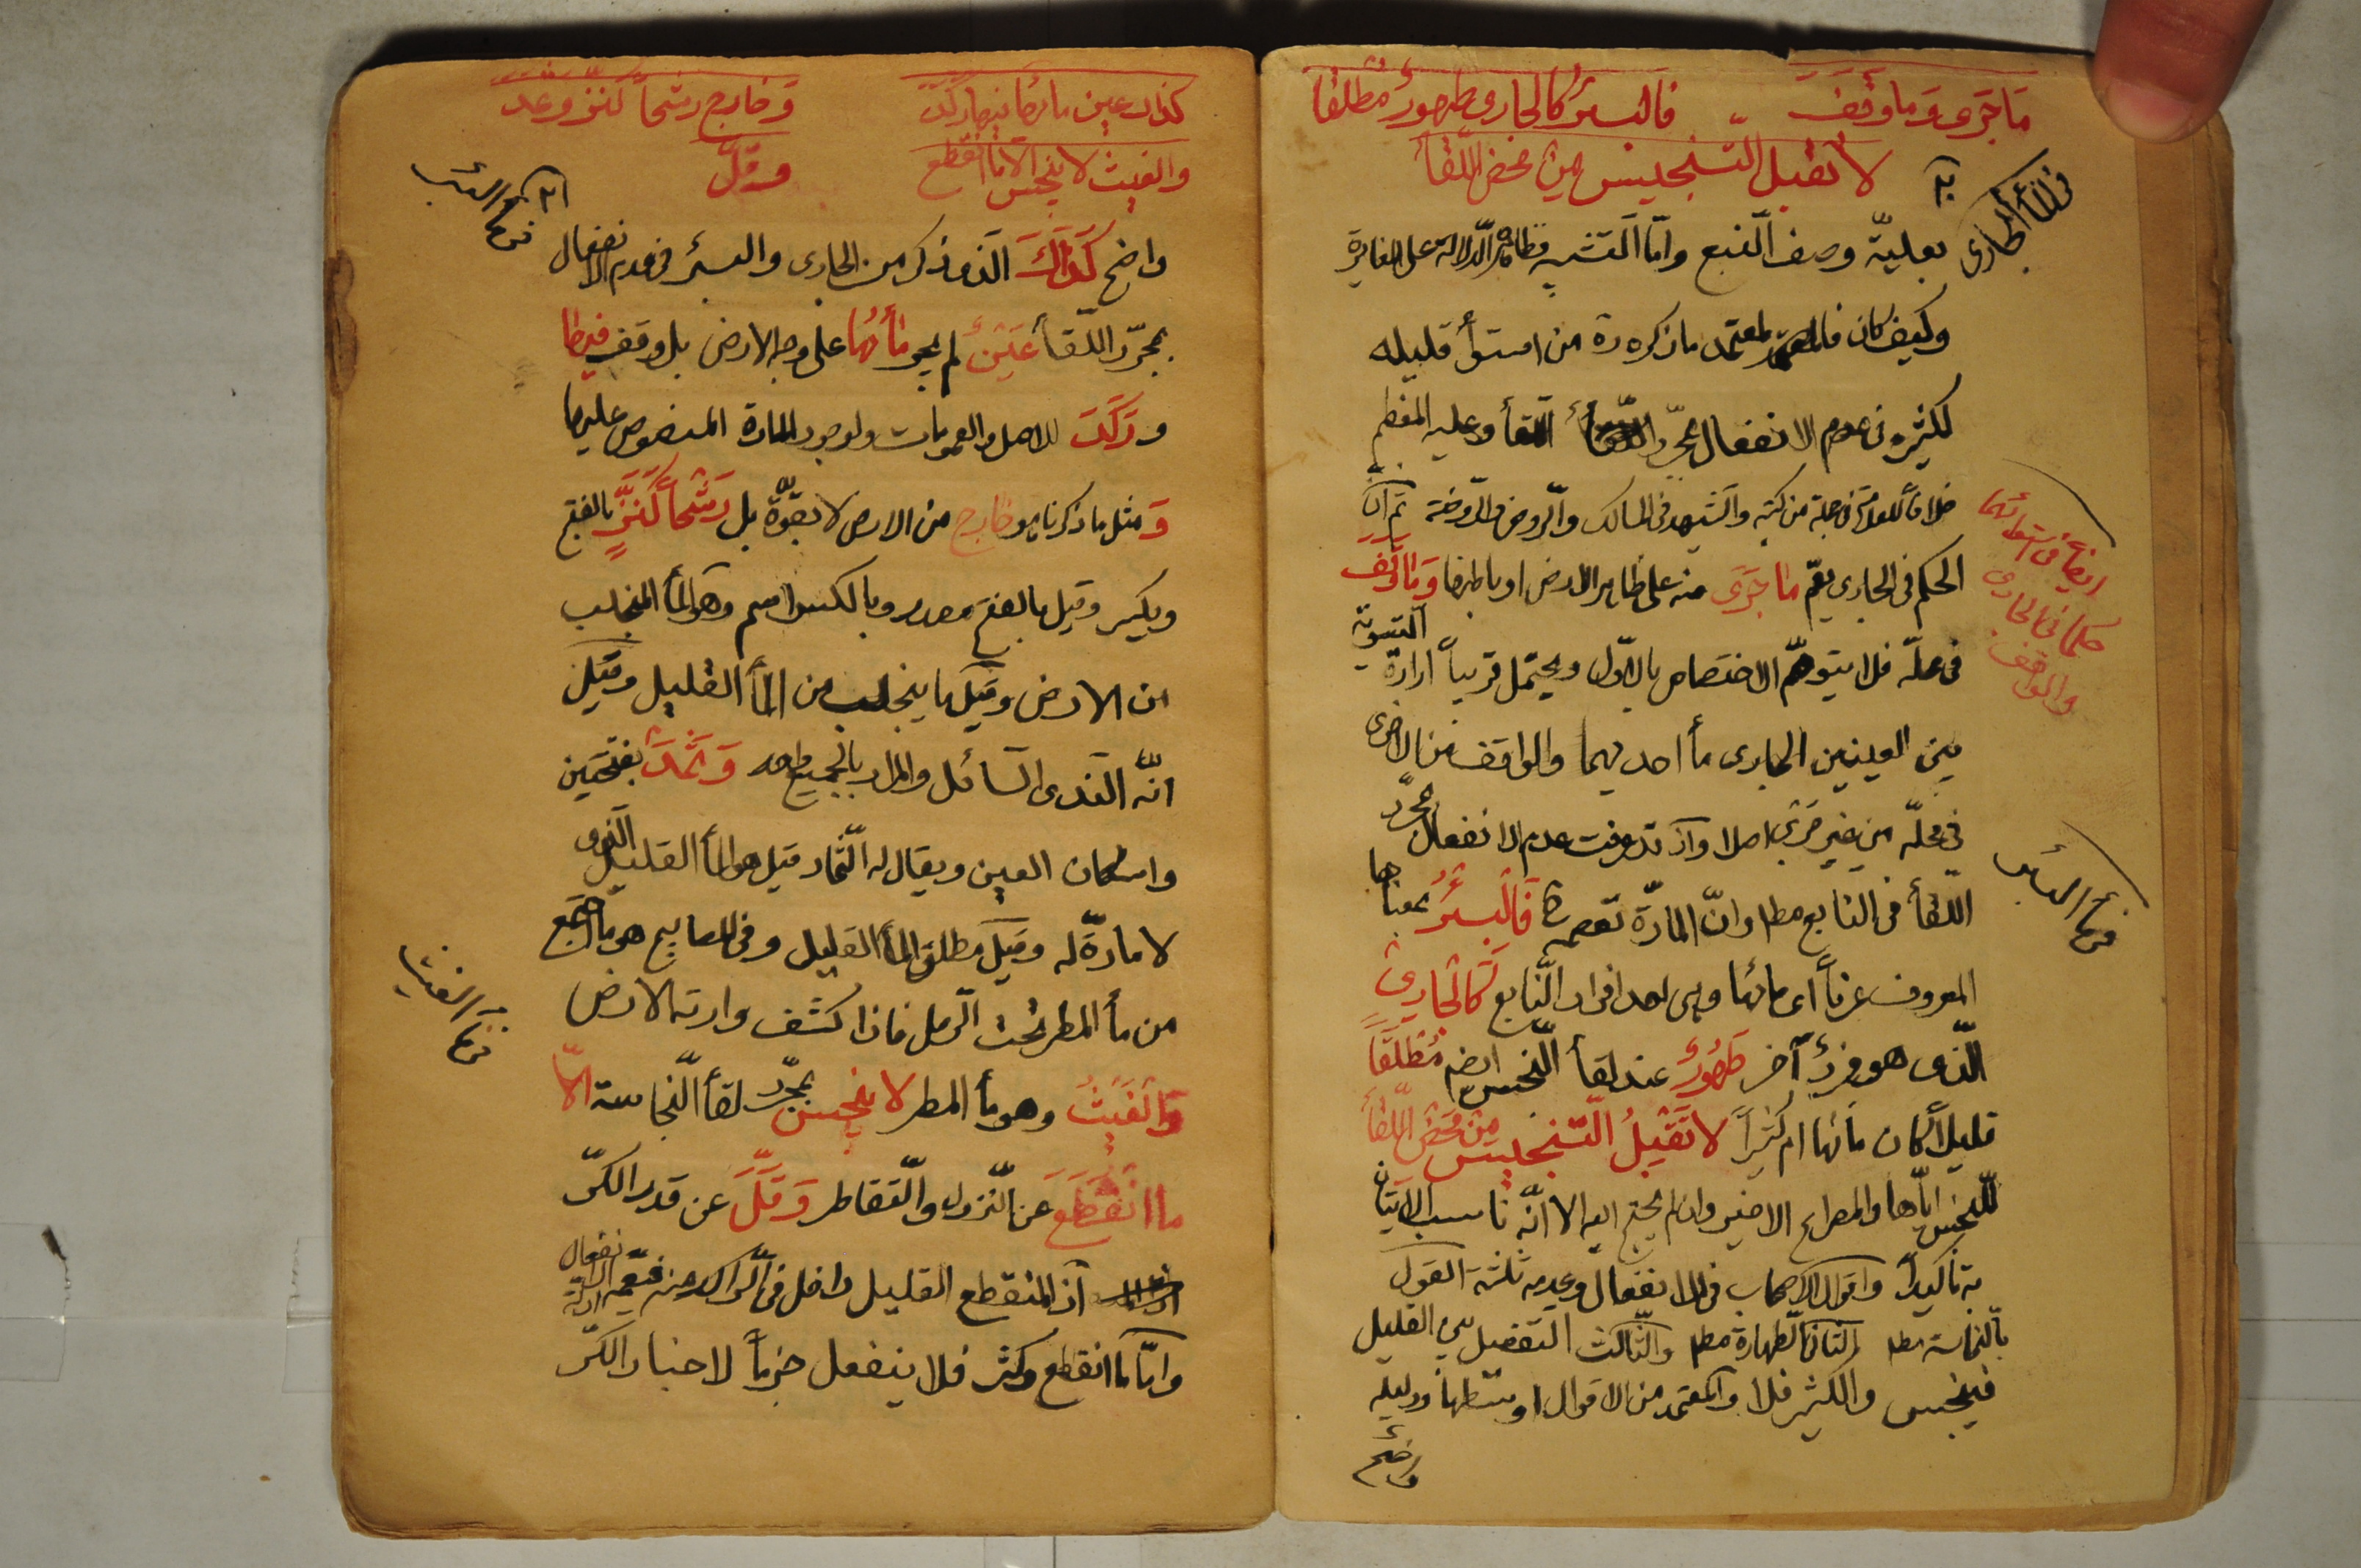 مَا جَرَى وَمَا وَقَفَ فالبئر كالجاري طهور مُطلقا
لا تقبل التنجيس من محض اللّقأ
في المأ الجاري
بعليّة وصف النبع وامّا التشبيه فظاهره الدّلالة على المغايرة
وكيف كان فالمعتمد ما ذكره من استوأ قليله
لكثيره في عدم الانفعال بمجرّد اللّقأ وعليه المعظم
خلافاً للعلامة في جملة من كتبه والشهيد في المسالك والروض والرّوضة ثم انّ
ايضاً في استوائهما
حكما في الجاري
والواقف
الحكم في الجاري يعمّ ما جَرَى منه على ظاهر الارض او باطنها وَمَا وَقَف
في محلّه فلا يتوهّم الاختصاص بالاوّل ويحتمل قريباً ارادة التسوية
بين العينين الجاري مأ احديهما والواقف من الاخرى
في محلّه من غير جرى اصلا واذ قد عرفت عدم الانفعال بمجرّد
اللّقأ في النابع مط وانّ المادّة تعصمه فَالْبِئْرُ بمعناها
في مأ البئر
المعروف عرفاً اى مائها وهي احد افراد النّابع كَالْجَارِي
الّذى هو فردٌ آخر طَهُورٌ عند لقأ النّجس ايضا مُطْلَقَاً
قليلاً كان مائها ام كثيراً لا تَقْبَلُ التَّنْجيسَ مِنْ مَحْضِ اللِّقأ
للنّجس ايّاها والمصراع الاخير وان لم يحتج اليه الا انّه ناسب الاتيان
به تأكيداً واقوال الاصحاب في الانفعال وعدمه ثلثة القول
بالنّجاسة مط والثاني الطهارة مط والثالث التفصيل بين القليل
فينجس والكثير فلا والمعتمد من الاقوال اوسطها ودليله
واضح
كذاك عين مائها فيها ركدت وخارج رشحاً كنزٍّ وثمد
والغيث لا ينجس الا ما انقطع وقلّ
في مأ البئر
واضح كَذَاكَ الّذي ذكر من الجارى والبئر في عدم الانفعال
بمجرّد اللّقأ عَيْنٌ لم يجر مَأئُهَا على وجه الارض بل وقف فيها
ورَكَدَت للاصل والعمومات ولوجود المادة المنصوص عليها
وَ مثل ما ذكرنا هو خَارِج من الارض لا بقوّة بل رَشْحاً كَنَزٍّ بالفتح
ويكسر وقيل بالفتح مصدر وبالكسر اسم وهو المأ المنجلب
من الارض وقيل ما ينجلب من المأ القليل وقيل
انّه النّدى السّائل والمراد بالجميع واحد وَثَمَدٌ بفتحتين
واسكان العين ويقال له الثّماد قيل هو المأ القليل الّذى
لا مادّة له وقيل مطلق المأ القليل وفي المصابيح هو ما اجتمع
من مأ المطر تحت الرّمل فاذا كشف وارته الارض
في مأ الغيث
وَالْغَيْثُ وهو مأ المطر لا ينجس بمجرّد لقأ النّجاسة الّا
مَا انْقَطَعَ عن النّزول والتّقاطر وَقَلَّ عن قدر الكرّ
اذ المنقطع القليل داخل في الرّاكد منه فيعمّه ادلّة الانفعال
وامّا ما انقطع وكثر فلا ينفعل جزماً لاخبار الكرّ